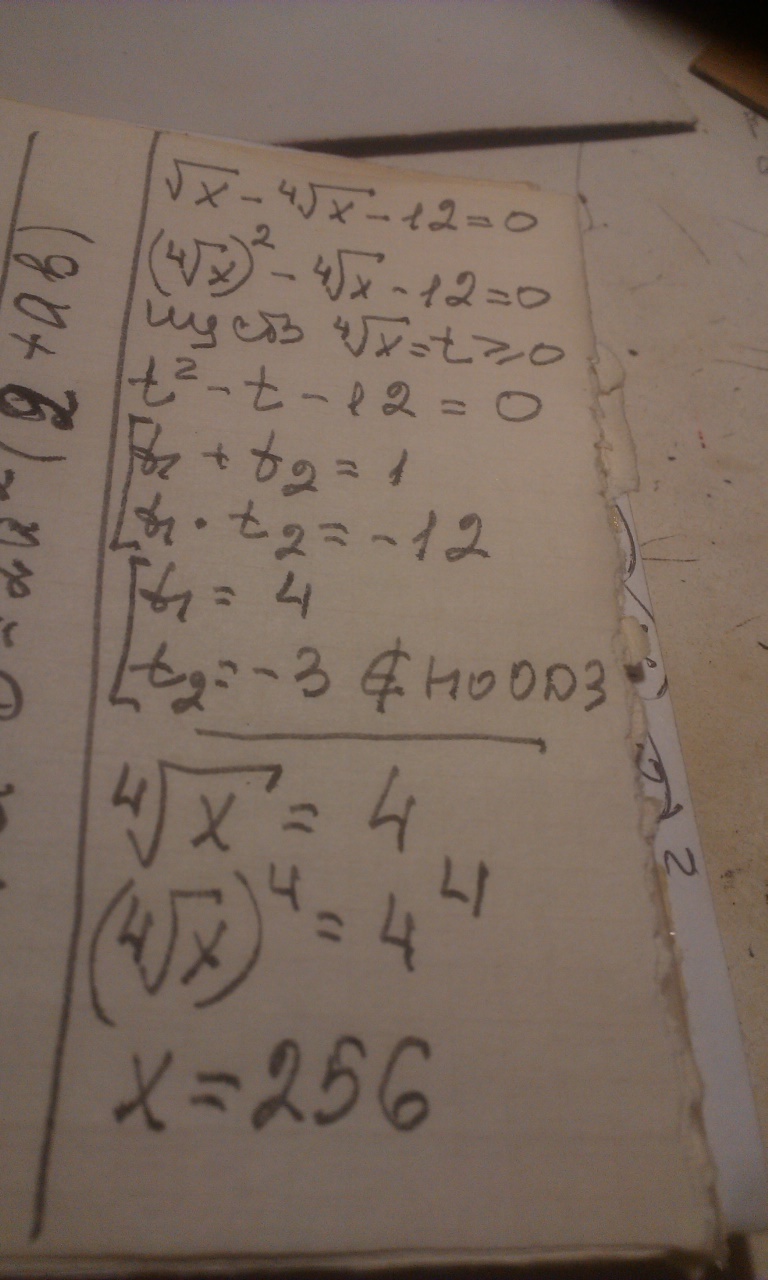 √x - ⁴√x - 12 = 0
(⁴√x)² - ⁴√x - 12 = 0
пусть ⁴√x = t ⩾ 0
t² - t - 12 = 0
[t₁ + t₂ = 1
[t₁ · t₂ = -12
[t₁ = 4
[t₂ = -3 ∉ ОДЗ
⁴√x = 4
(⁴√x)⁴ = 4⁴
x = 256
2 + ab)